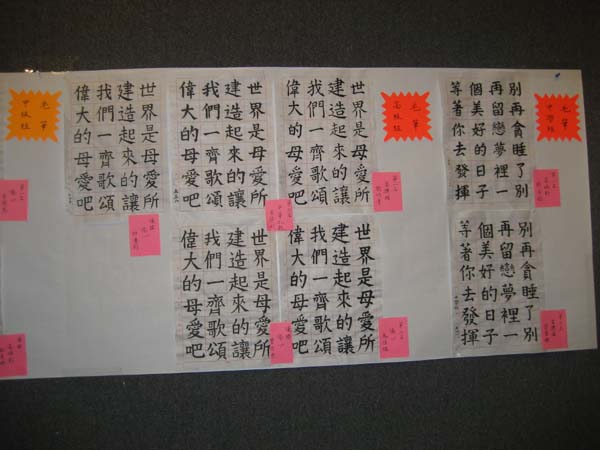 毛筆
中學組
別再貪睡了別
再留戀夢裡一
個美好的日子
等著你去發揮
別再貪睡了別
再留戀夢裡一
個美好的日子
等著你去發揮
毛筆
高級組
世界是母愛所
建造起來的讓
我們一齊歌頌
偉大的母愛吧
世界是母愛所
建造起來的讓
我們一齊歌頌
偉大的母愛吧
世界是母愛所
建造起來的讓
我們一齊歌頌
偉大的母愛吧
世界是母愛所
建造起來的讓
我們一齊歌頌
偉大的母愛吧
世界是母愛所
建造起來的讓
我們一齊歌頌
偉大的母愛吧
毛筆
中級組